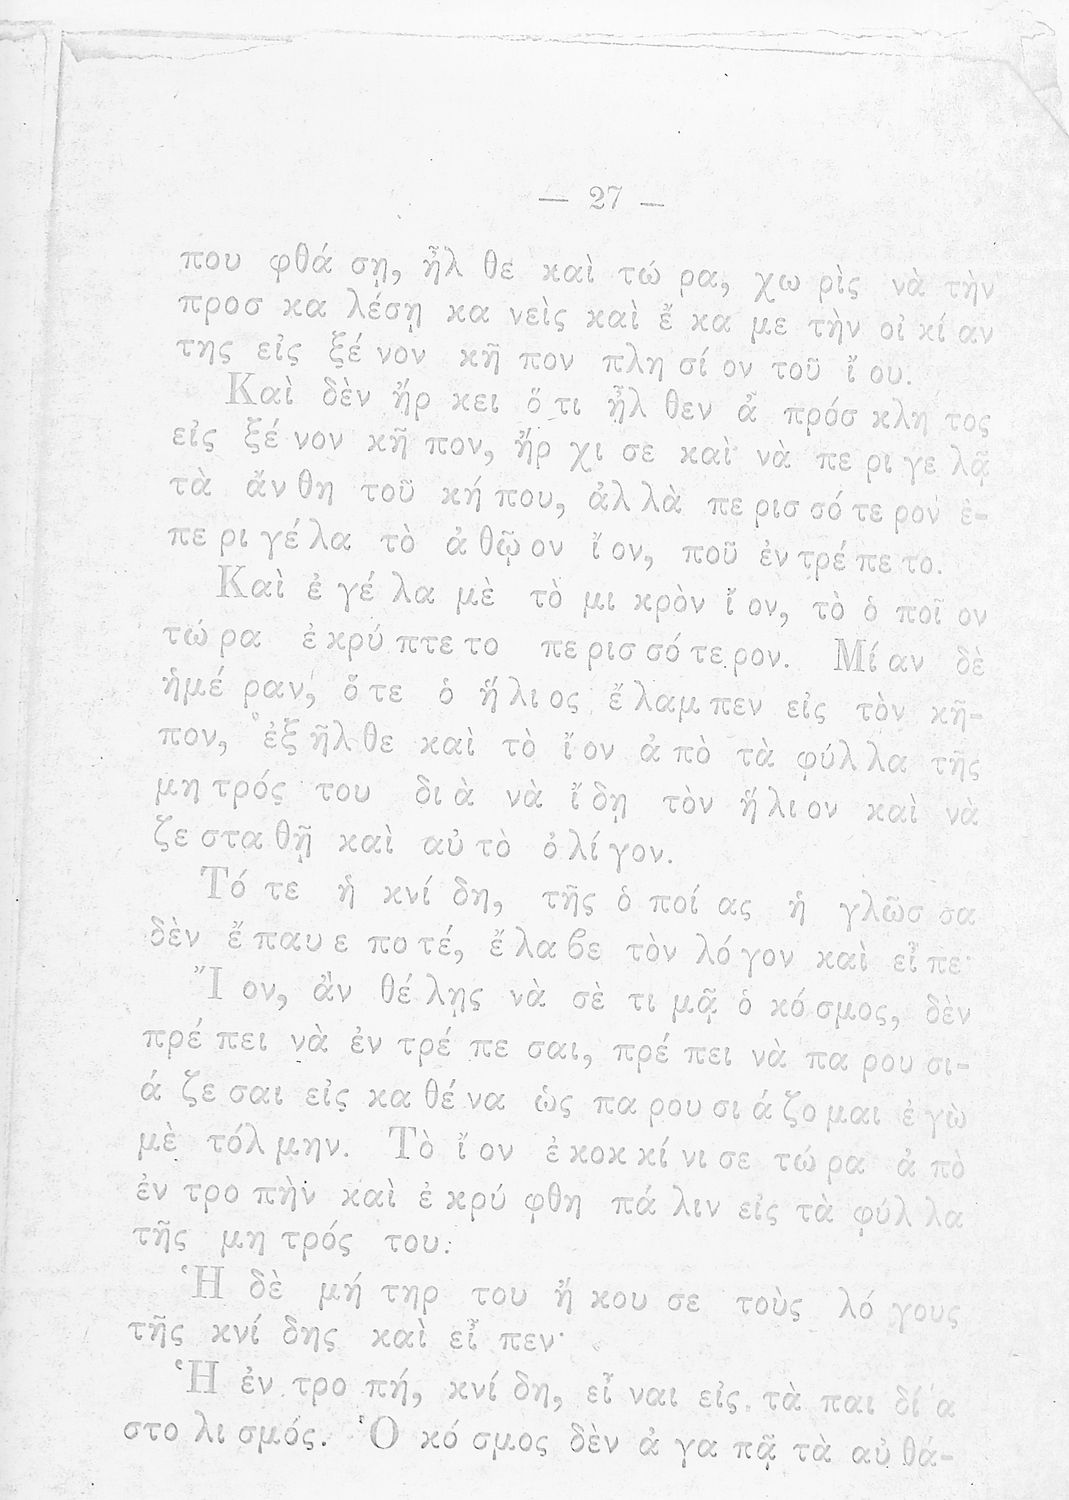 — 27 —
που φθά σῃ, ἦλ θε καὶ τώ ρα, χω ρὶς νὰ τὴν
προσ κα λέσῃ κα νεὶς καὶ ἔ κα με τὴν οἰ κί αν
της εἰς ξέ νον κῆ πον πλη σί ον τοῦ ἴ ου.
Καὶ δὲν ἤρ κει ὅ τι ἦλ θεν ἀ πρόσ κλη τος
εἰς ξέ νον κῆ πον, ἤρ χι σε καὶ νὰ πε ρι γε λᾷ
τὰ ἄν θη τοῦ κή που, ἀλ λὰ πε ρισ σό τε ρον ἐ-
πε ρι γέ λα τὸ ἀ θῷ ον ἴ ον, ποῦ ἐν τρέ πε το.
Καὶ ἐ γέ λα μὲ τὸ μι κρὸν ἴ ον, τὸ ὁ ποῖ ον
τώ ρα ἐ κρύ πτε το πε ρισ σό τε ρον. Μί αν δὲ
ἡμέ ραν, ὅ τε ὁ ἥ λι ος ἔ λαμ πεν εἰς τὸν κῆ-
πον, ἐξ ῆλ θε καὶ τὸ ἴ ον ἀ πὸ τὰ φύλ λα τῆς
μη τρός του δι ὰ νὰ ἴ δῃ τὸν ἥ λι ον καὶ νὰ
ζε στα θῇ καὶ αὐ τὸ ὀ λί γον.
Τό τε ἡ κνί δη, τῆς ὁ ποί ας ἡ γλῶσ σα
δὲν ἔ παυ ε πο τέ, ἔ λα βε τὸν λό γον καὶ εἶ πε·
Ἴ ον, ἂν θέ λῃς νὰ σὲ τι μᾷ ὁ κό σμος, δὲν
πρέ πει νὰ ἐν τρέ πε σαι, πρέ πει νὰ πα ρου σι-
ά ζε σαι εἰς κα θέ να ὡς πα ρου σι ά ζο μαι ἐ γὼ
μὲ τόλ μην. Τὸ ἴ ον ἐ κοκ κί νι σε τώ ρα ἀ πὸ
ἐν τρο πὴν καὶ ἐ κρύ φθη πά λιν εἰς τὰ φύλ λα
τῆς μη τρός του.
Ἡ δὲ μή τηρ του ἤ κου σε τοὺς λό γους
τῆς κνί δης καὶ εἶ πεν·
Ἡ ἐν τρο πή, κνί δη, εἶ ναι εἰς τὰ παι δί α
στο λι σμός. Ὁ κό σμος δὲν ἀ γα πᾷ τὰ αὐ θά-